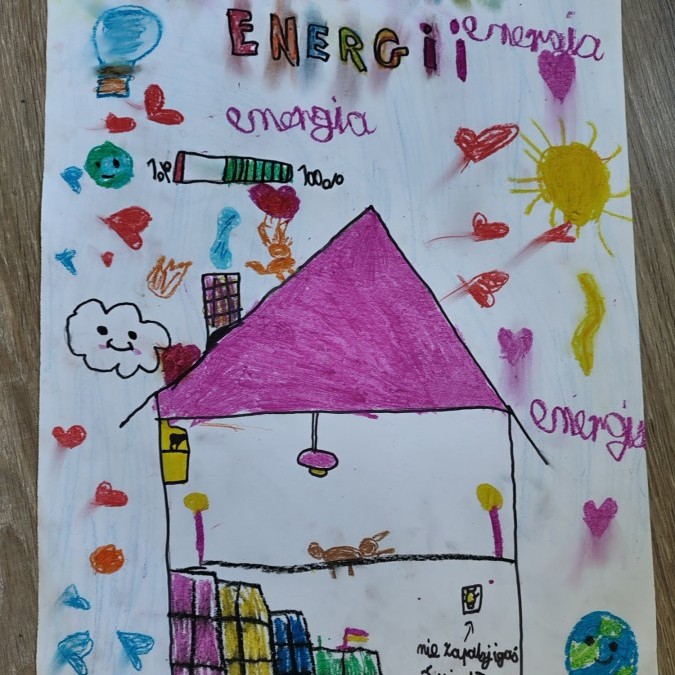 ENERGii
energia
energia
10% 100%
energia
nie zapalaj